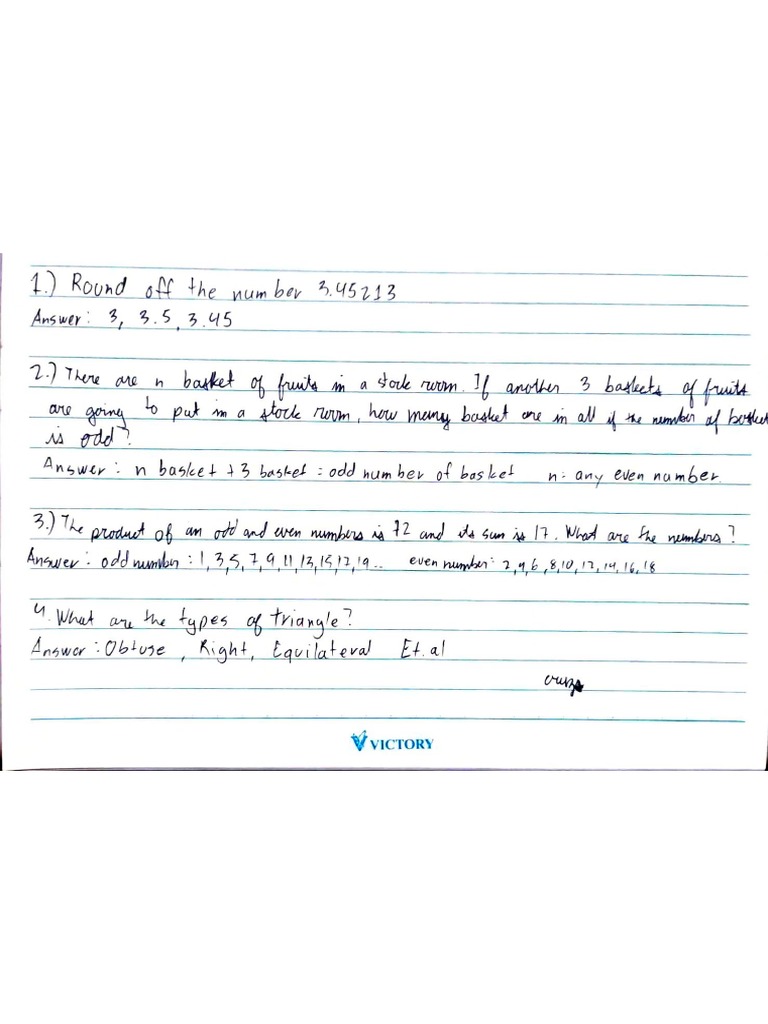 1.) Round off the number 3.45213
Answer: 3, 3.5, 3.45
2.) There are n basket of fruits in a stock room. If another 3 baskets of fruits
are going to put in a stock room, how many basket are in all if the number of basket
is odd?
Answer: n basket + 3 basket = odd number of basket n = any even number.
3.) The product of an odd and even numbers is 72 and its sum is 17. What are the numbers?
Answer: odd number: 1, 3, 5, 7, 9, 11, 13, 15, 17, 19.. even number: 2, 4, 6, 8, 10, 12, 14, 16, 18
4. What are the types of triangle?
Answer: Obtuse, Right, Equilateral Et. al
VICTORY